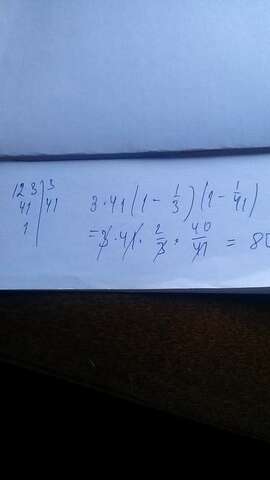 123|3
41|41
1|
3·41(1-1/3)(1-1/41)
=3·41·2/3·40/41=80